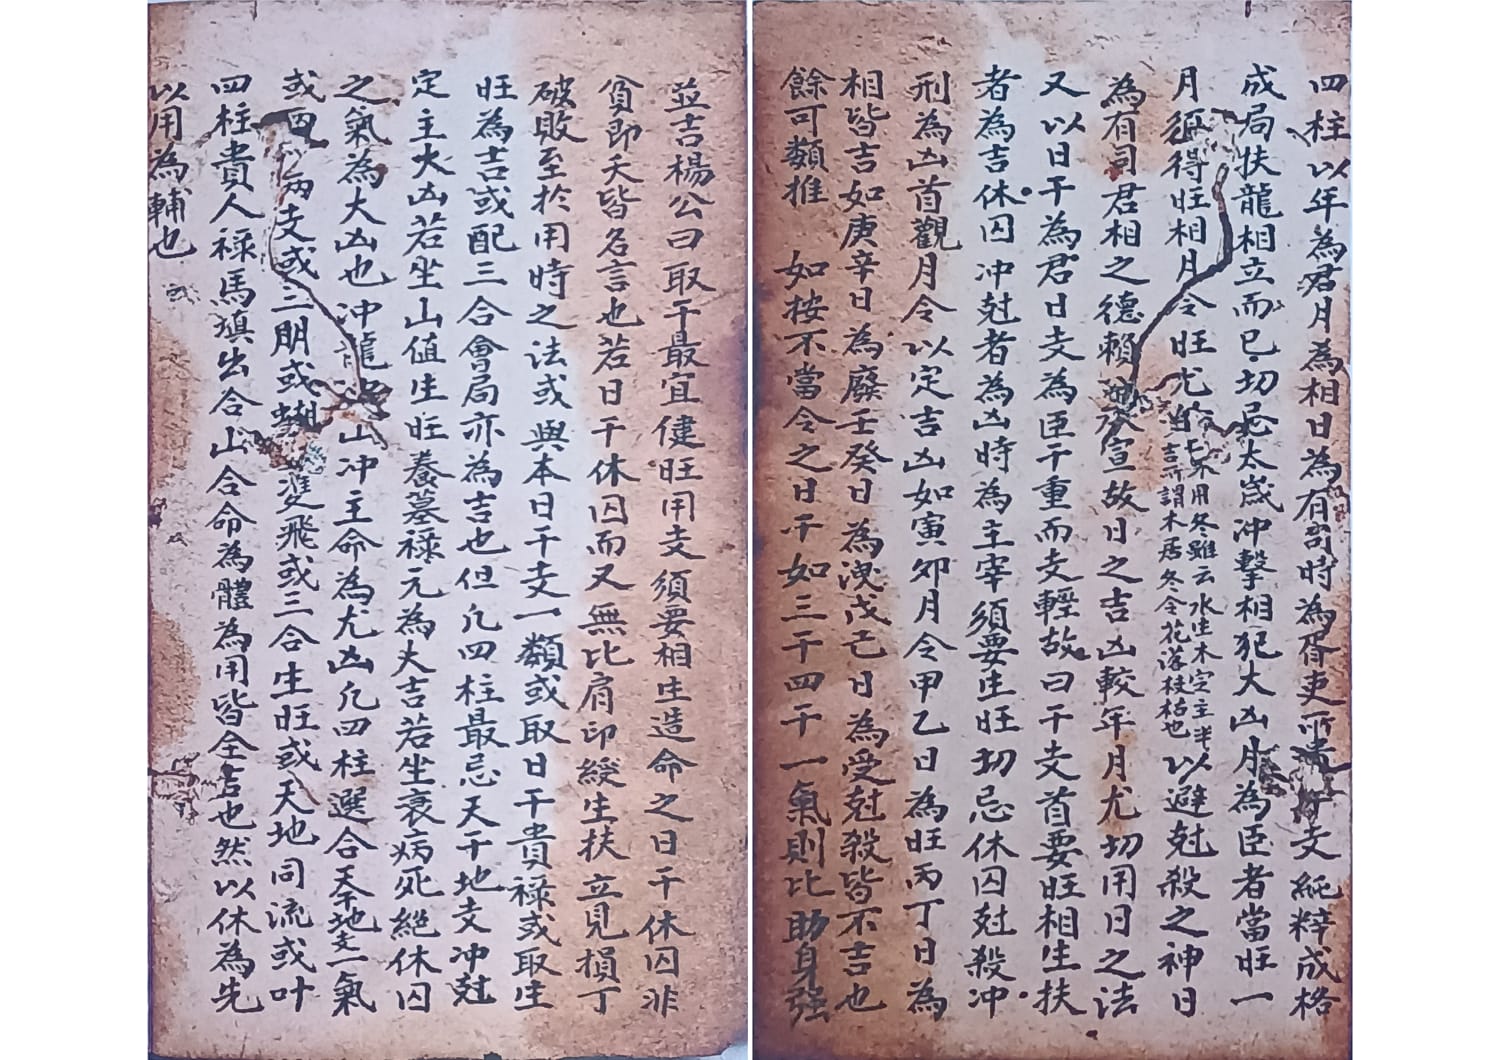 四柱以年為君月為相日為有司時為胥吏干支純粹成格
成局扶龍相立而已切忌太歲冲擊相犯大凶月為臣者當旺一
月須得旺相月令旺尤 七不用冬雖云水生木定主半吉所謂木居冬令花落枝枯也以避尅殺之神日
為有司君相之德賴 宣故日之吉凶較年月尤切用日之法
又以日干為君日支為臣干重而支輕故曰干支首要旺相生扶
者為吉休囚冲尅者為凶時為主宰須要生旺切忌休囚尅殺冲
刑為凶首觀月令以定吉凶如寅夘月令甲乙日為旺丙丁日為
相皆吉如庚辛日為廢壬癸日為洩戊己日為受尅殺皆不吉也
餘可類推 如按不當令之日干如三干四干一氣則比助身强
並吉楊公曰取干最宜健旺用支須要相生造命之日干休囚非
貧即夭皆名言也若日干休囚而又無比肩印綬生扶立見損丁
破敗至於用時之法或與本日干支一類或取日干貴祿或取生
旺為吉或配三合會局亦為吉也但凡四柱最忌天干地支冲尅
定主大凶若坐山值生旺養墓祿元為大吉若坐衰病死絕休囚
之氣為大凶也冲龍 山冲主命為尤凶凡四柱選合天地支一氣
或 兩支或三朋或蝴 雙飛或三合生旺或天地同流或叶
四柱貴人祿馬填出合山合命為體為用皆全吉也然以休為先
以用為輔也